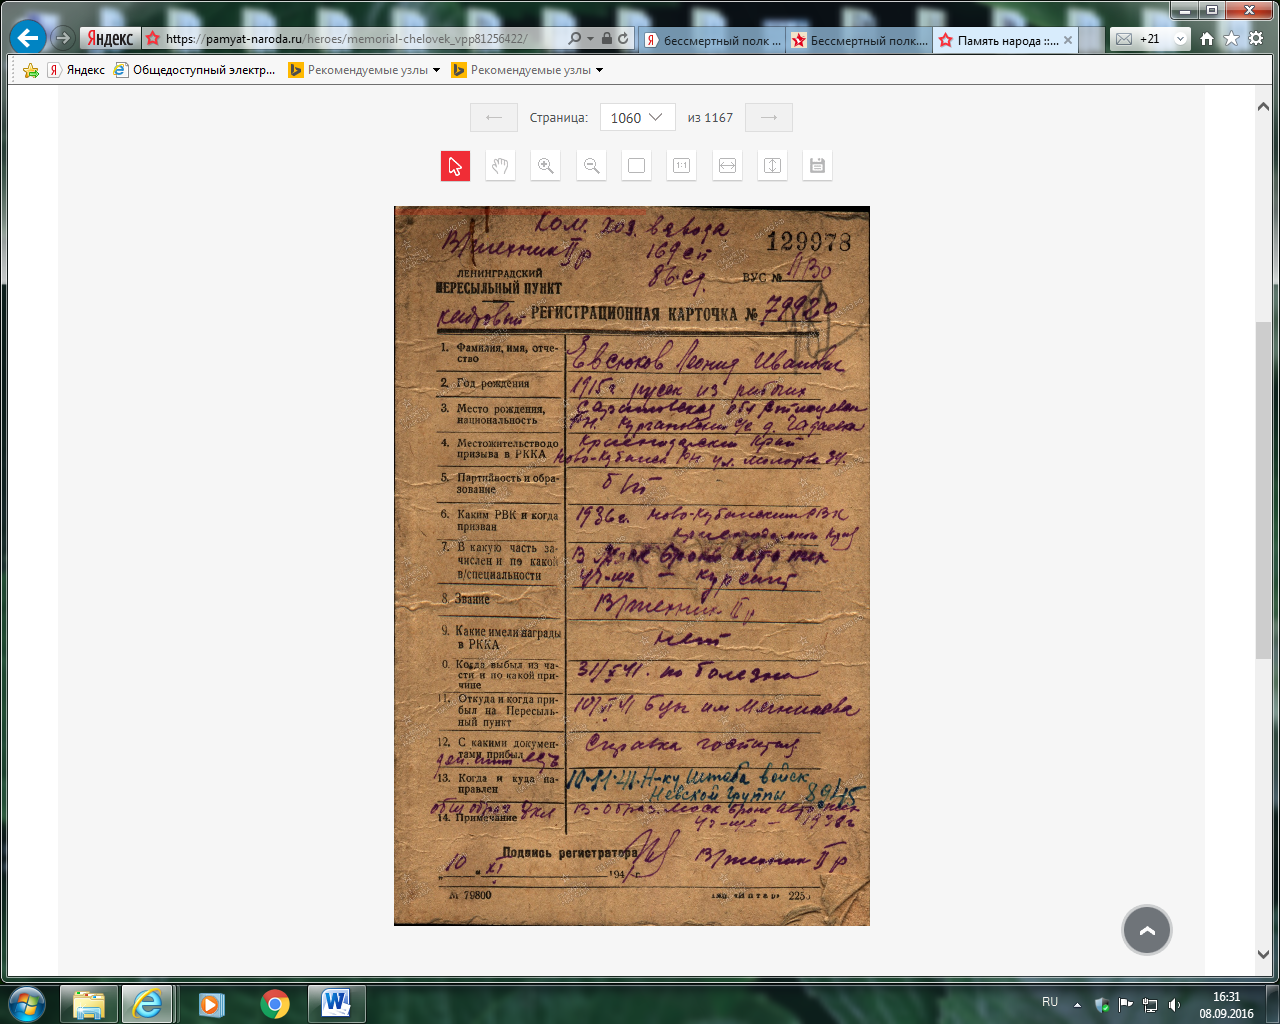 Яндекс
https://pamyat-naroda.ru/heroes/memorial-chelovek_vpp81256422/
бессмертный полк ...
Бессмертный полк....
Память народа ::...
+21
Яндекс
Общедоступный электр...
Рекомендуемые узлы
Рекомендуемые узлы
Страница:
1060
из 1167
1:1
Ком. хоз. взвода
В/техник II р
169 сп
129978
86 сд.
ЛЕНИНГРАДСКИЙ
ПЕРЕСЫЛЬНЫЙ ПУНКТ
ВУС №
кадровый
РЕГИСТРАЦИОННАЯ КАРТОЧКА № 79920
1. Фамилия, имя, отче-
ство
Евсюков Леонид Иванович
2. Год рождения
1915 г. русск из рабочих
3. Место рождения,
национальность
Саратовская обл
д.
4. Местожительство до
призыва в РККА
Краснодарский край
Ново-Кубанск РН ул. Молотова 34.
5. Партийность и обра-
зование
б/п
6. Каким РВК и когда
призван
1936 г. Ново-Кубанским РВК
Краснодарский край
7. В какую часть за-
числен и по какой
в/специальности
В Моск броне авто тех
уч-ще – курсант
8. Звание
В/техник II р
9. Какие имели награды
в РККА
нет
0. Когда выбыл из ча-
сти и по какой при-
чине
31/X 41. по болезни
11. Откуда и когда при-
был на Пересыль-
ный пункт
10/XI 41 б-цы им Мечникова
12. С какими докумен-
тами прибыл
Справка госпиталя
13. Когда и куда на-
правлен
10.11.41. Н-ку Штаба войск
Невской Группы
общ образ 7 кл
14. Примечание
В-образ. Моск броне авто тех
уч-ще – 1938 г
Подпись регистратора
В/техник II р
„ 10 “ XI 1941 г.
№ 79800
RU
16:31
08.09.2016